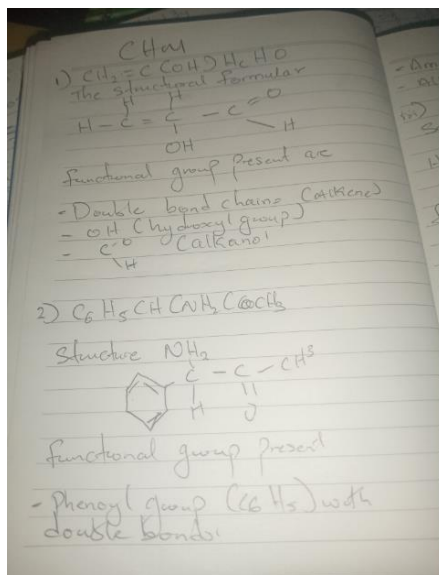 CHM
1) CH2 = C (OH) HcHO
The structural formular
H H
H - C = C - C = O
OH H
functional group present are
- Double bond chain= (alkene)
- OH (hydroxyl group)
- C=O (alkanol
H
2) C6H5CH(NH2)COCH3
Structure NH2
C - C - CH3
H O
functional group present
- Phenoyl group (C6H5) with
double bonds.
- Am